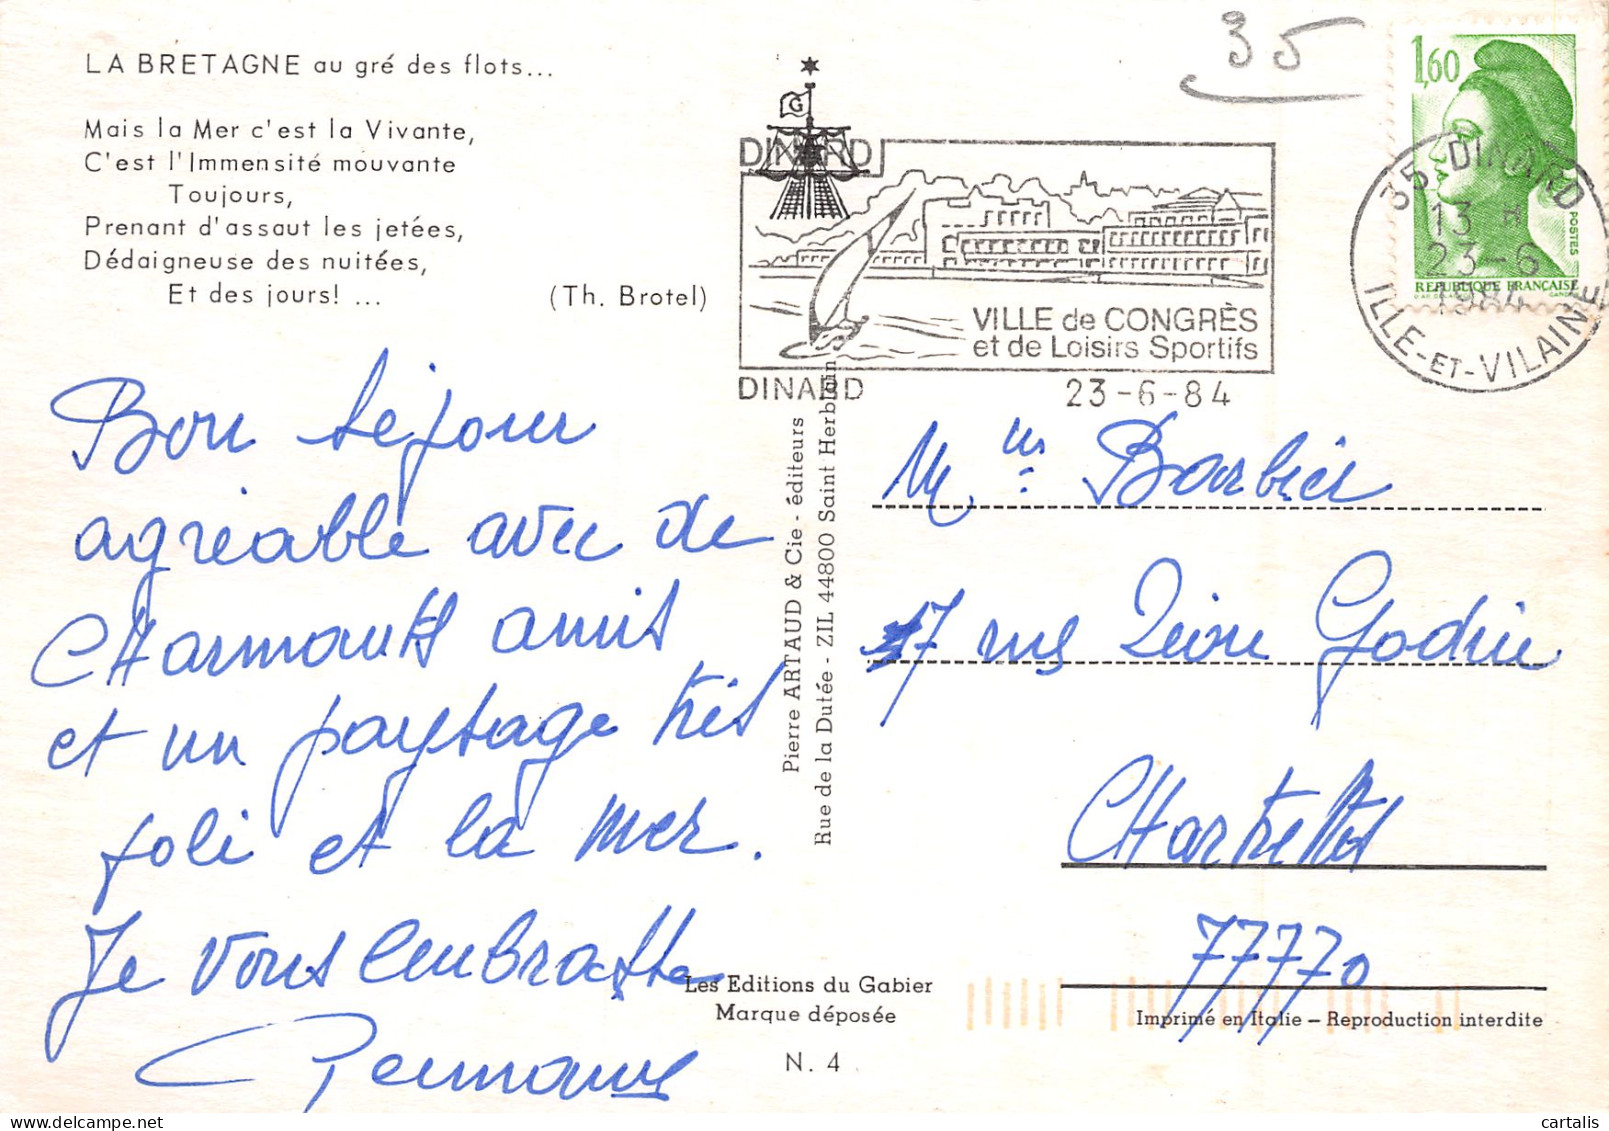 LA BRETAGNE au gré des flots...
Mais la Mer c'est la Vivante,
C'est l'Immensité mouvante
Toujours,
Prenant d'assaut les jetées,
Dédaigneuse des nuitées,
Et des jours! ...
(Th. Brotel)
Bon séjour
agréable avec de
CHarmants amis
et un paysage très
joli et la mer.
Je vous embrasse
Germaine
35
G
DINARD
VILLE de CONGRÈS
et de Loisirs Sportifs
DINARD
23-6-84
1,60
POSTES
REPUBLIQUE FRANÇAISE
35 DINARD
13 H
23-6
1984
ILLE-ET-VILAINE
Pierre ARTAUD & Cie - éditeurs
Rue de la Dutée - ZIL 44800 Saint Herblain
Barbier
17 rue Godin
CHartrettes
77770
Les Editions du Gabier
Marque déposée
N. 4
Imprimé en Italie – Reproduction interdite
cartalis